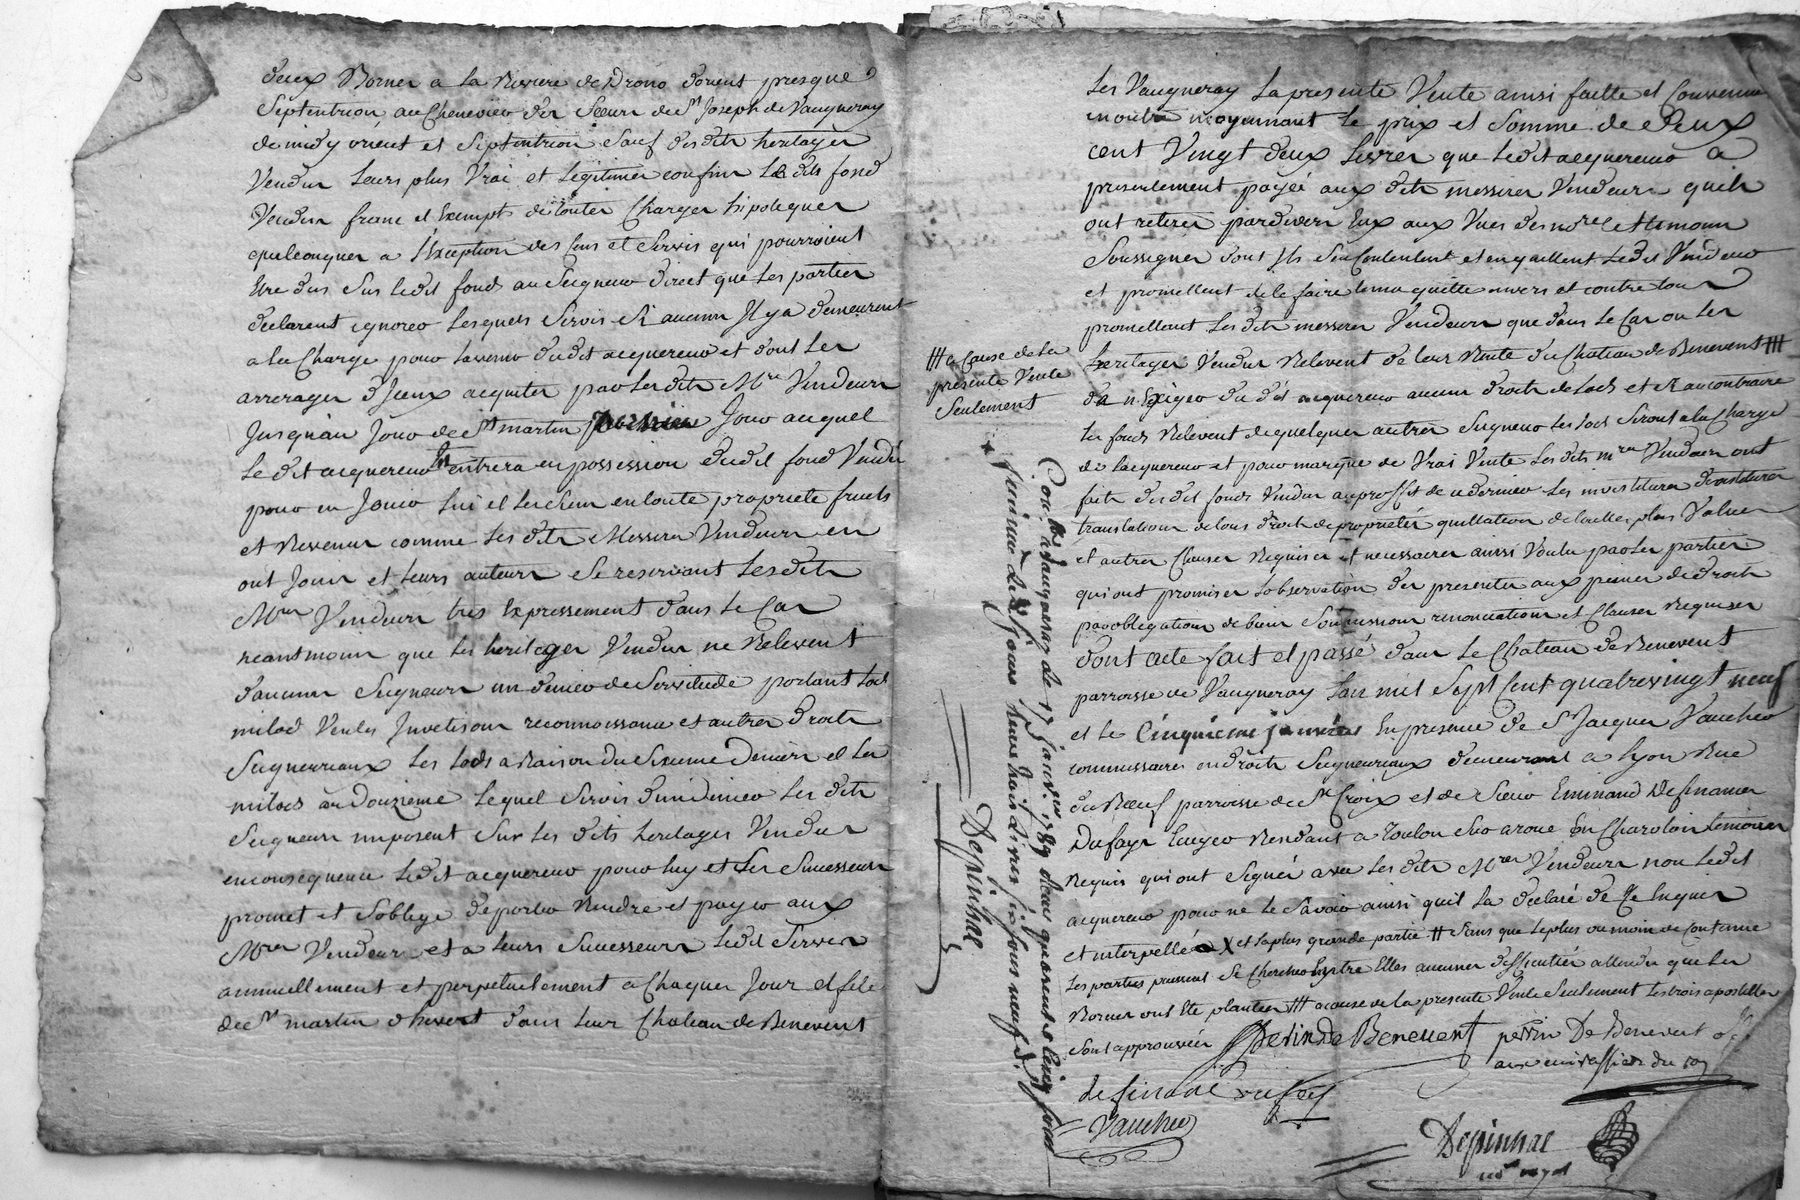 deux Bornes a la Riviere de Drono dorient presque
Septentrion, au Chenevier des Sœurs de St Joseph de Vaugneray
de midy orient et Septentrion Sauf desdits heritages
Vendus Leurs plus Vrai et Legitimes confins Lesdits fond
Vendus franc et Exempts de toutes Charges hipoteques
quelconques a l'Exception des Cens et Servis qui pourroient
Etre dus Sur ledit fonds au Seigneur direct que Les parties
declarent ignorer Lesquels Servis Si aucun Il y a demeurent
a la Charge pour lavenir dudit acquereur et dont Les
arrerages d Iceux acquites par Lesdits Mrs Vendeurs
Jusquau Jour de St martin Jour auquel
Le dit acquereur entrera en possession dudit fond Vendu
pour en Jouir Lui et Les siens en toute propriete fruits
et Revenus comme Lesdits Messires Vendeurs en
ont Joui et Leurs auteurs Se reservant Lesdits
Mrs Vendeurs tres Expressement dans Le Cas
neantmoins que Les heritages Vendus ne Relevent
daucuns Seigneurs un denier de Servitude portant Lods
milod Ventes Investison reconnoissance et autres droits
Seigneuriaux Les Lods a Raison du Sixieme Denier et Les
milods au Douzieme Lequel Servis dun denier Les dits
Seigneurs imposent Sur Les dits heritages Vendus
en consequence Ledit acquereur pour Luy et Les Successeurs
promet et Soblige de porter Rendre et payer aux
Mrs Vendeurs et a Leurs Successeurs Ledit Servis
annuellement et perpetuelement a Chaque Jour et fete
de St martin dhivert dans Leur Chateau de Benevent
Les Vaugneray La presente Vente ainsi faitte et Convenue
en outre moyennant Le prix et Somme de Deux
cent Vingt deux Livres que Ledit acquereur a
presentement payéé aux dits messires Vendeurs quils
ont retirés pardevers Eux aux Vues des nore et temoins
Soussignes dont Ils Sen Contentent et en quittent Ledit Vendeur
et promettent de le faire tenir quitte envers et contre tous
promettant Les dits messires Vendeurs que dans Le Cas ou Les
heritages Vendus Relevent de leur Rente du Chateau de Benevent
da n Exiger du dit acquereur aucun droits de Lods et Si au contraire
Les fonds Relevent de quelques autres Seigneurs Les Lods Seront a la Charge
de Lacquereur et pour marque de Vrai Vente Lesdits mrs Vendeurs ont
faits des dit fonds Vendus au proffit de ce dernier Les investitures devestitures
translations de tous droits de proprietés quittation de toutes plus Values
et autres Clauses Requises et necessaires ainsi Voulu par Les parties
qui ont promises Lobservation des presentes aux peines de droits
par obligations de biens Soumissions renonciations et Clauses Requises
dont acte fait et passé dans Le Chateau de Benevent
parroisse de Vaugneray Lan mil Sept Cent quatrevingt neuf
et Le Cinquieme janvier En presence de Sr Jacques Vaucher
commissaires en droits Seigneuriaux demeurant a Lyon Rue
du Bœuf parroisse de Ste Croix et de Sieur Emmand De finance
Dufays Ecuyer Residant a Toulon Sur aroue En Charolois temoins
Requis qui ont Signés avec Les dits Mres Vendeurs non Ledit
acquereur pour ne Le Savoir ainsi quil La declaré de Ce Enquis
et interpellé X et La plus grande partie # Sans que Le plus ou moins de Contenue
Les parties puissent Se Chercher Entre Elles aucunes difficultés attendu que Les
Bornes ont Eté plantées ### a cause de la presente Vente Seulement Les trois apostilles
Sont approuvées Perin De Benevent perrin De Benevent
ancien officier du roy
de finance dufays
Vaucher
Despinhac
nore royal
### a Cause de La
presente Vente
Seulement
Con. a Vaugneray Le 17 janv. 1789 Recu quarente Cinq sous
huit Livres Six sous neuf d.
Despinhac